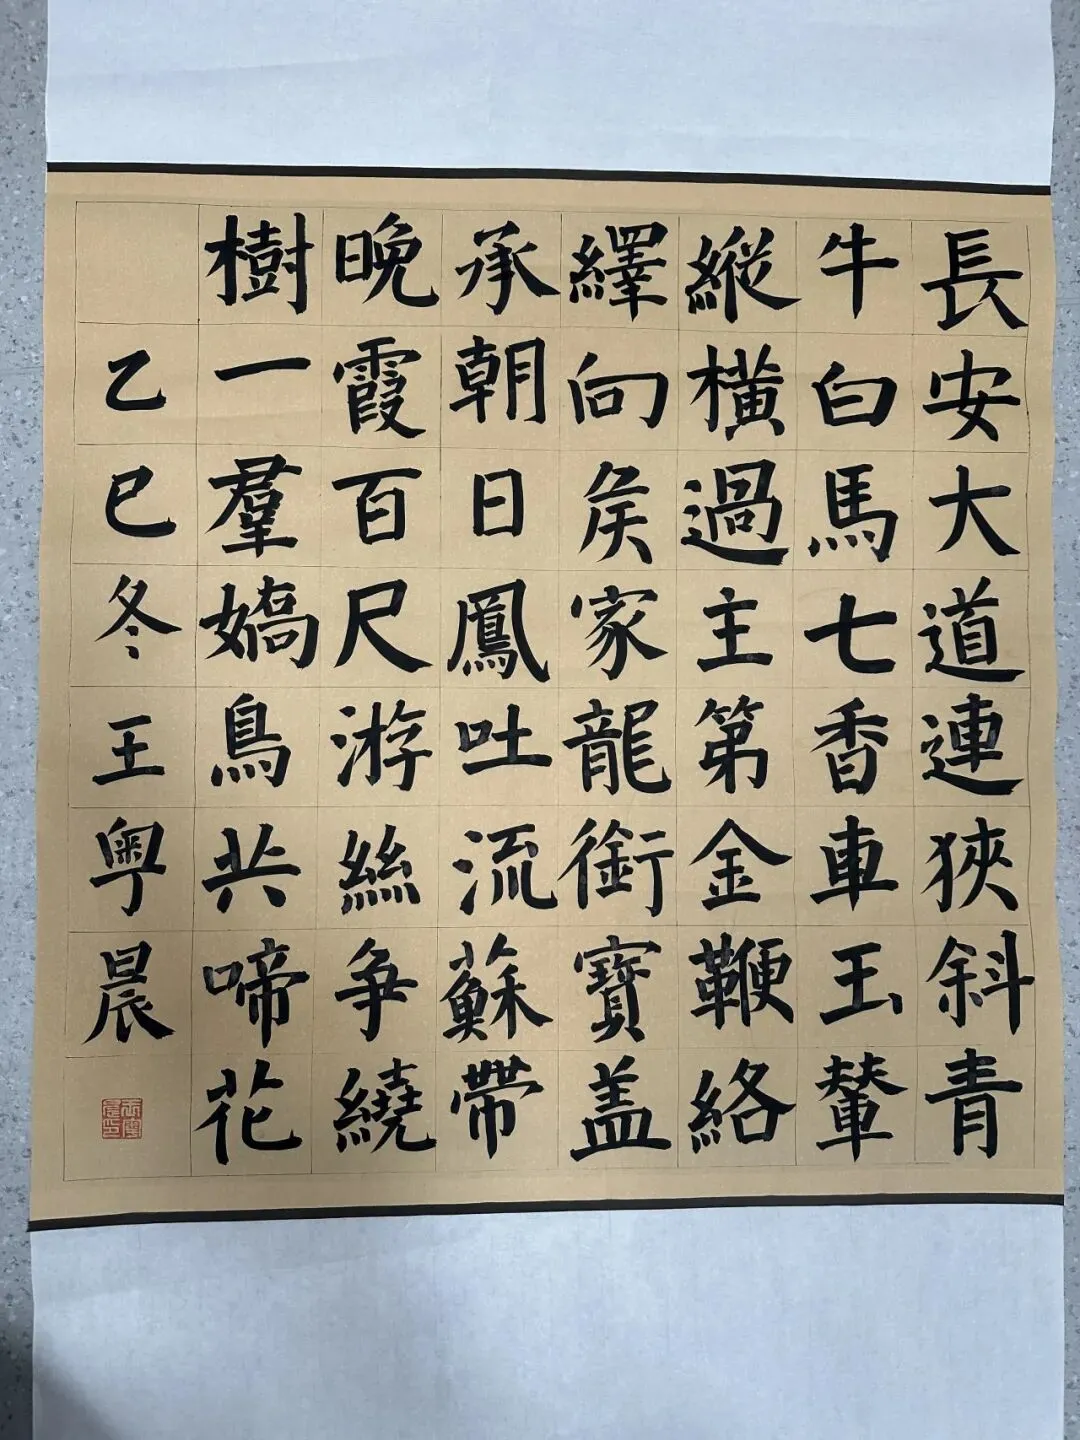 長安大道連狹斜青
牛白馬七香車玉輦
縱橫過主第金鞭絡
繹向矦家龍銜寶盖
承朝日鳳吐流蘇帶
晚霞百尺游絲争繞
樹一羣嬌鳥共啼花
乙巳冬王粤晨